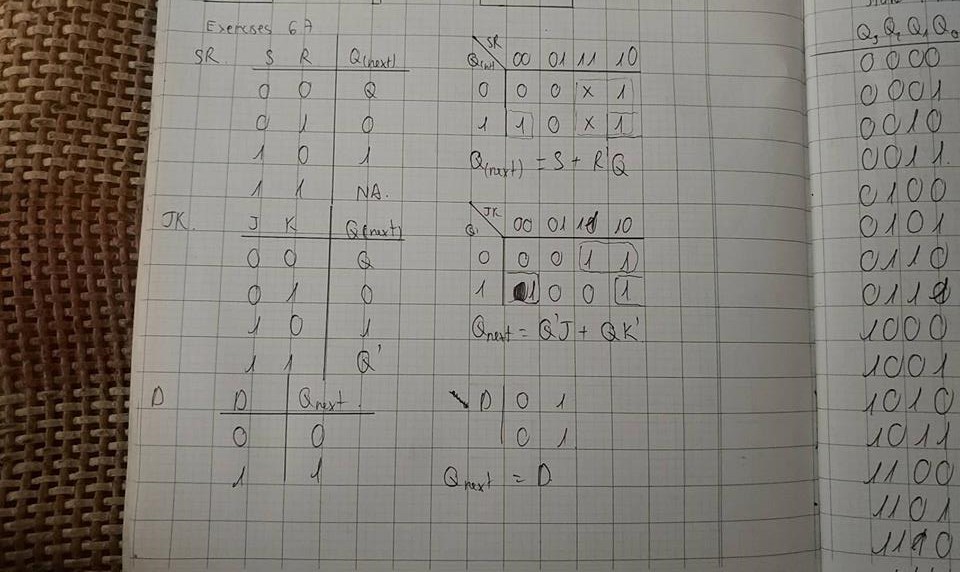 Exercises 6A
SR.
S R Q(next)
0 0 Q
0 1 0
1 0 1
1 1 NA.
SR 00 01 11 10
0 0 0 x 1
1 1 0 x 1
Q(next) = S + R'Q
JK.
J K Q(next)
0 0 Q
0 1 0
1 0 1
1 1 Q'
JK 00 01 11 10
Q
0 0 0 1 1
1 1 0 0 1
Qnext = Q'J + QK'
D
D Qnext
0 0
1 1
D 0 1
0 1
Qnext = D
Q3 Q2 Q1 Q0
0000
0001
0010
0011
0100
0101
0110
0111
1000
1001
1010
1011
1100
1101
1110